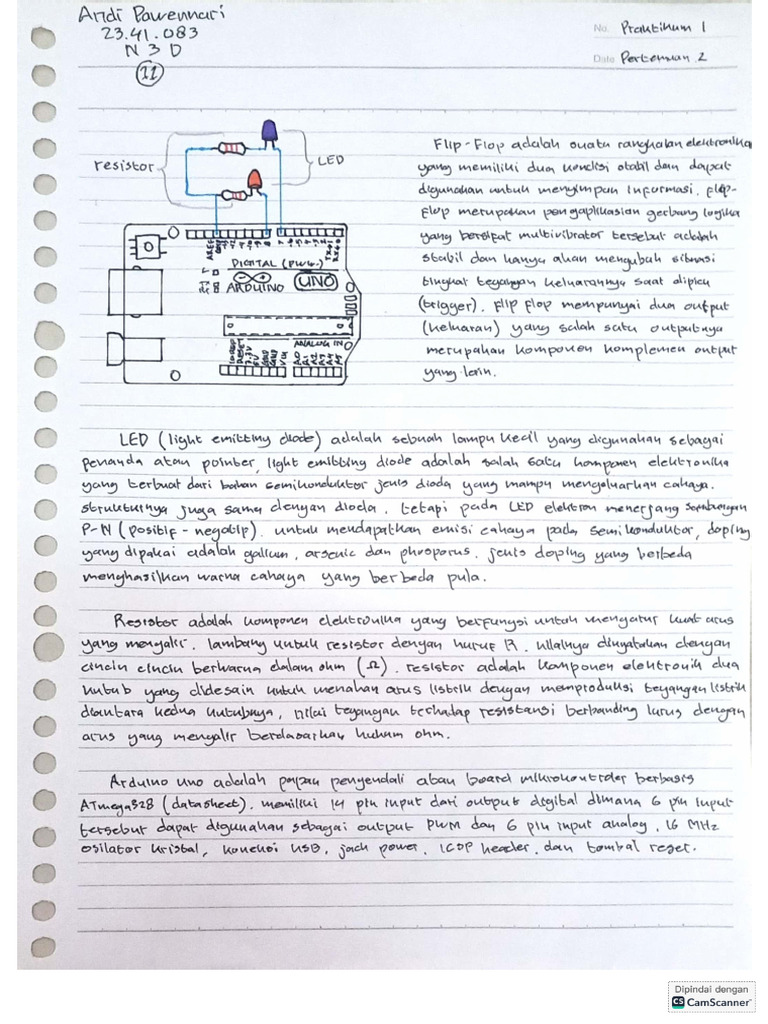 Andi Pawennari
23.41.083
N 3 D
11
No. Praktikum 1
Date Pertemuan 2
resistor
LED
AREF
GND
DIGITAL (PWM~)
ARDUINO
UNO
ANALOG IN
RESET
3.3V
5V
GND
GND
VIN
A0
A1
A2
A3
A4
A5
Flip-Flop adalah suatu rangkaian elektronika
yang memiliki dua kondisi stabil dan dapat
digunakan untuk menyimpan informasi. Flip-
Flop merupakan pengaplikasian gerbang logika
yang bersifat multivibrator tersebut adalah
stabil dan hanya akan mengubah situasi
tingkat tegangan keluarannya saat dipicu
(trigger). Flip flop mempunyai dua output
(keluaran) yang salah satu outputnya
merupakan komponen komplemen output
yang lain.
LED (light emitting diode) adalah sebuah lampu kecil yang digunakan sebagai
penanda atau pointer, light emitting diode adalah salah satu komponen elektronika
yang terbuat dari bahan semikonduktor jenis dioda yang mampu mengeluarkan cahaya.
strukturnya juga sama dengan dioda, tetapi pada LED elektron menerjang sambungan
P-N (positif - negatip). untuk mendapatkan emisi cahaya pada semikonduktor, doping
yang dipakai adalah galium, arsenic dan phosporus. jenis doping yang berbeda
menghasilkan warna cahaya yang berbeda pula.
Resistor adalah komponen elektronika yang berfungsi untuk mengatur kuat arus
yang mengalir. lambang untuk resistor dengan huruf R. nilainya dinyatakan dengan
cincin cincin berwarna dalam ohm (Ω). resistor adalah komponen elektronik dua
kutub yang didesain untuk menahan arus listrik dengan memproduksi tegangan listrik
diantara kedua kutubnya, nilai tegangan terhadap resistansi berbanding lurus dengan
arus yang mengalir berdasarkan hukum ohm.
Arduino uno adalah papan pengendali atau board mikrokontroler berbasis
ATmega328 (datasheet). memiliki 14 pin input dari output digital dimana 6 pin input
tersebut dapat digunakan sebagai output PWM dan 6 pin input analog, 16 MHz
osilator kristal, koneksi USB, jack power, ICSP header, dan tombol reset.
Dipindai dengan
CS CamScanner